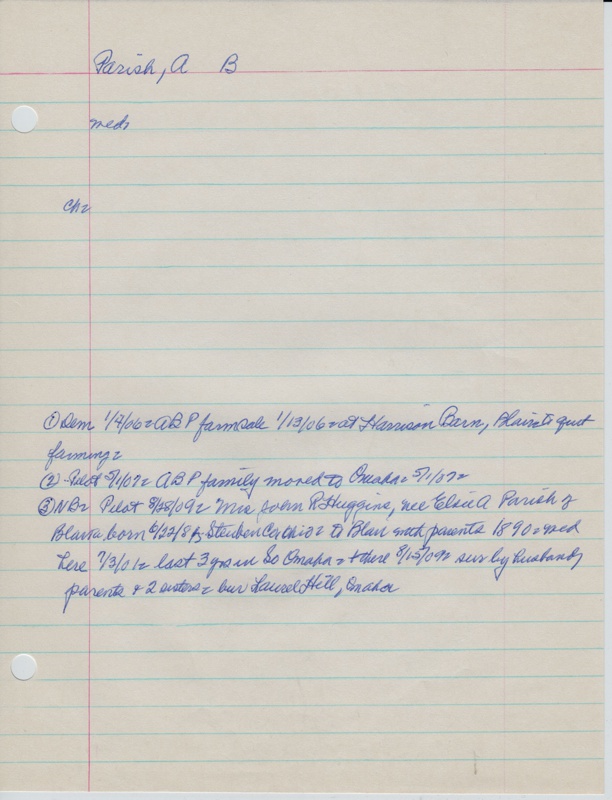 Parish, A B
med=
ch=
① Dem 1/4/06= A B P farm sale 1/13/06= at Harrison Barn, Blair= to quit
farming=
② Pilot 5/1/07= A B P family moved to Omaha= 5/1/07=
③ NB= Pilot = Mrs R Huggins, nee Elsie A Parish of
Blair= born 6/22/8 Steuben Co = to Blair with parents 1890= med
here 7/3/01= last 3 yrs in So Omaha= + there = surv by husband,
parents + 2 sisters= bur Laurel Hill, Omaha